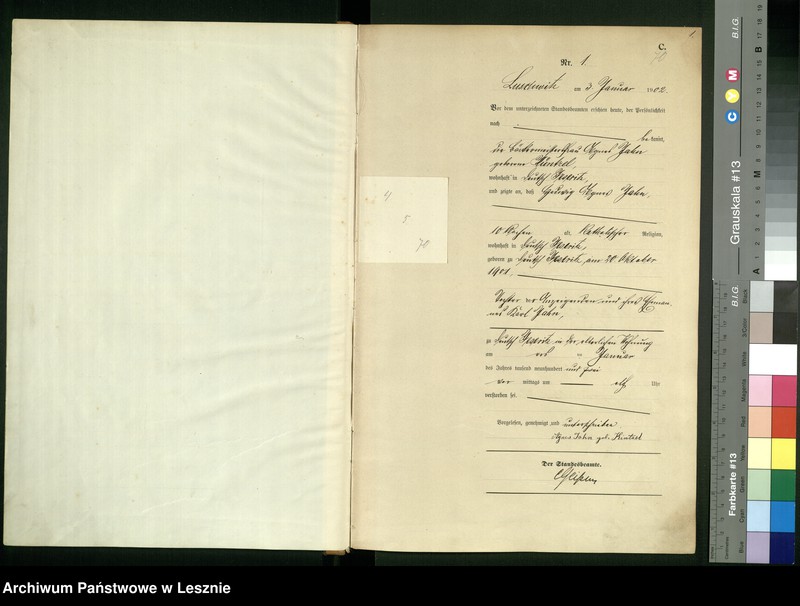 C.
1
70
Nr. 1
am 3 Januar 1902
Vor dem unterzeichneten Standesbeamten erschien heute, der Persönlichkeit
nach
be kannt,
die Bäckermeisterfrau Agnes Jahn
geborene
wohnhaft in Deutsch
und zeigte an, daß Hedwig Agnes Jahn,
10 Wochen alt, Katholischer Religion,
wohnhaft in Deutsch
geboren zu Deutsch am 20 Oktober
1901
Tochter der Anzeigenden und ihres Eheman-
nes Karl Jahn,
zu Deutsch in der elterlichen Wohnung
am ersten Januar
des Jahres tausend neunhundert und zwei
vor mittags um elf Uhr
verstorben sei.
Vorgelesen, genehmigt und unterschrieben
Agnes Jahn geb.
Der Standesbeamte.
4
5
70
B.I.G.
Grauskala #13
C Y M
A
M
B
B.I.G.
Farbkarte #13
Blue Cyan Green Yellow Red Magenta White 3/Color Black
Archiwum Państwowe w Lesznie